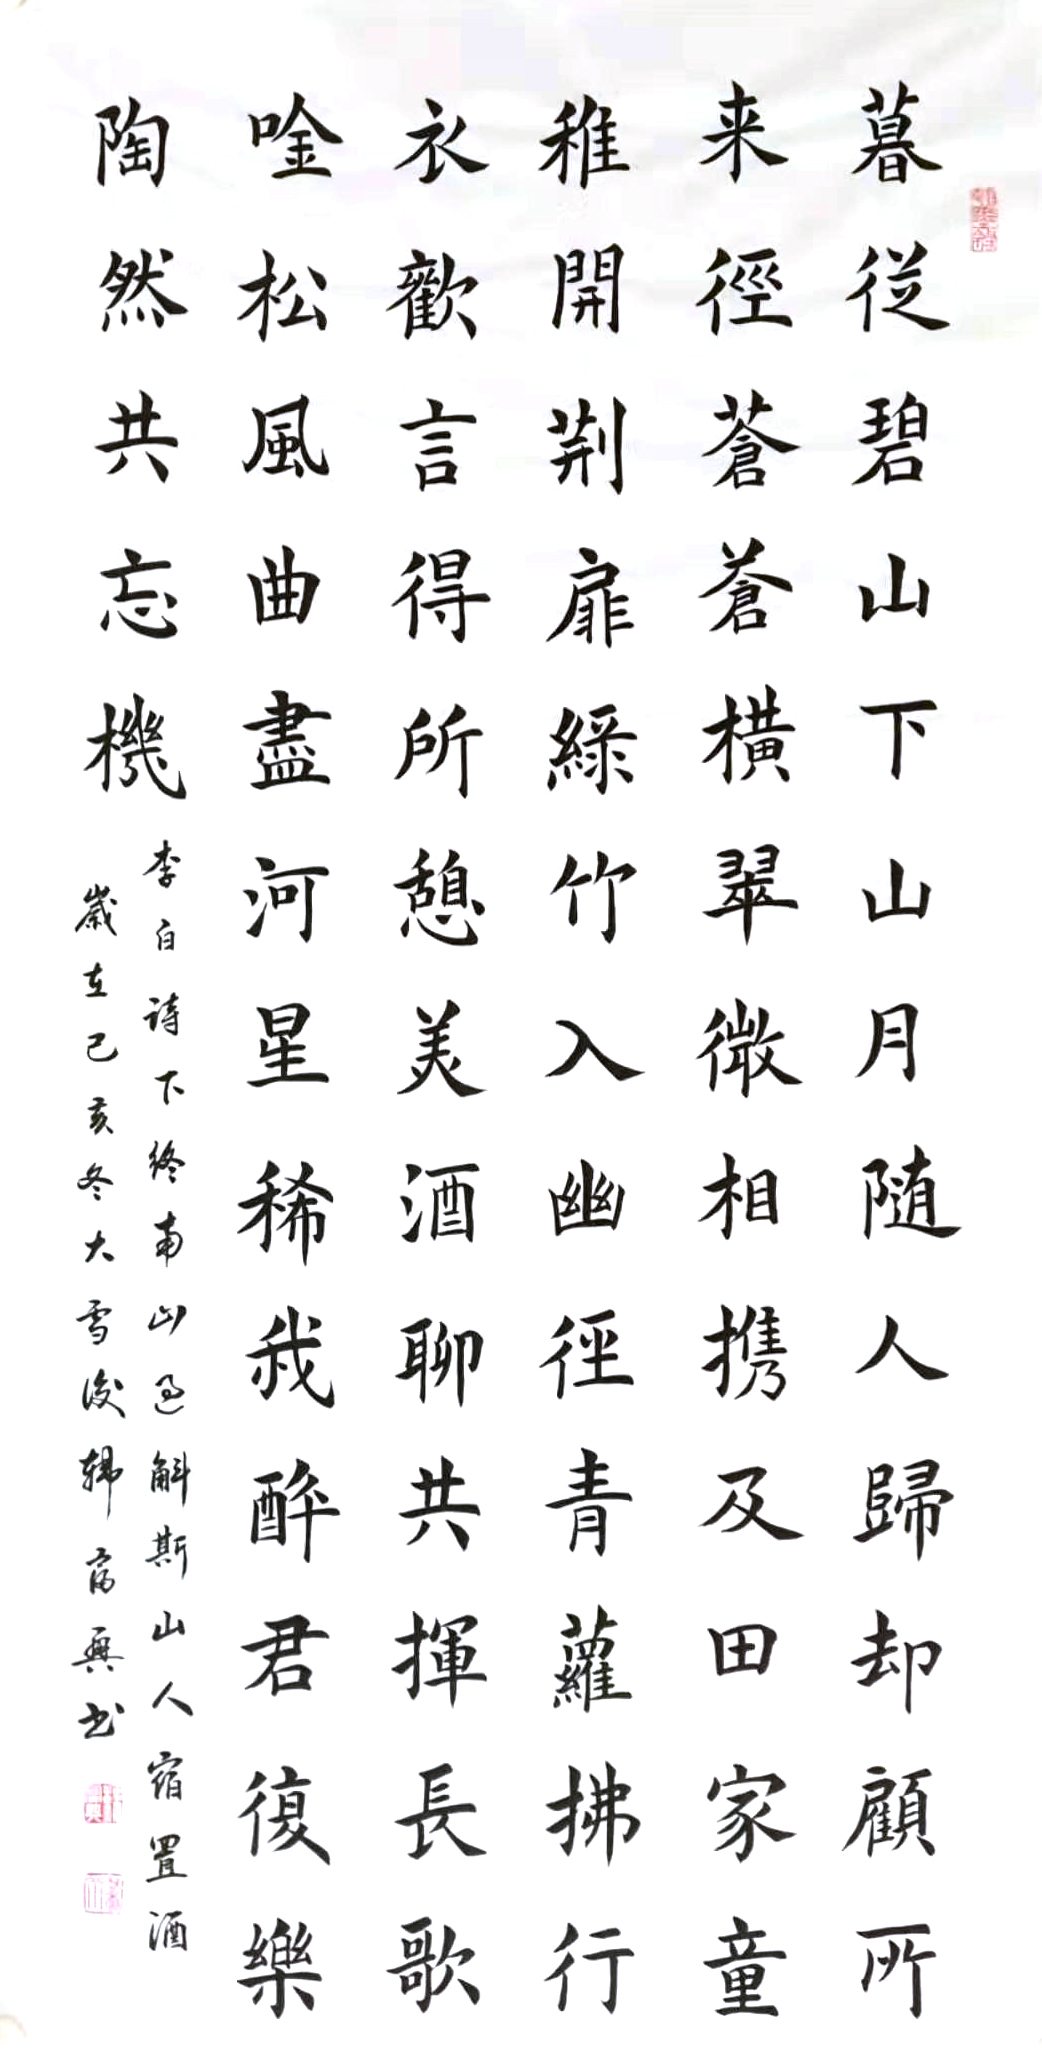 暮從碧山下山月随人歸却顧所
来徑蒼蒼橫翠微相携及田家童
稚開荆扉綠竹入幽徑青蘿拂行
衣歡言得所憩美酒聊共揮長歌
唫松風曲盡河星稀我醉君復樂
陶然共忘機
李白诗下终南山過斛斯山人宿置酒
歲在己亥冬大雪後韩富興书